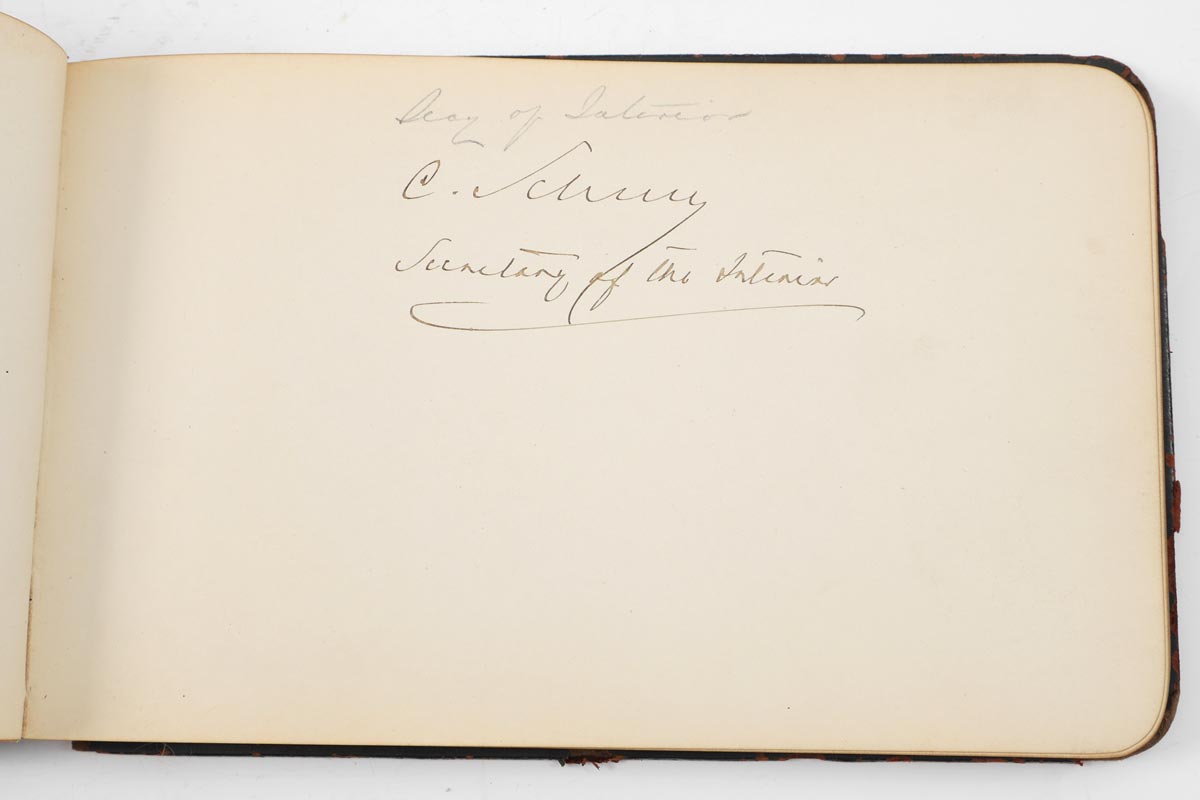 Secy of Interior
C. Schurz
Secretary of the Interior